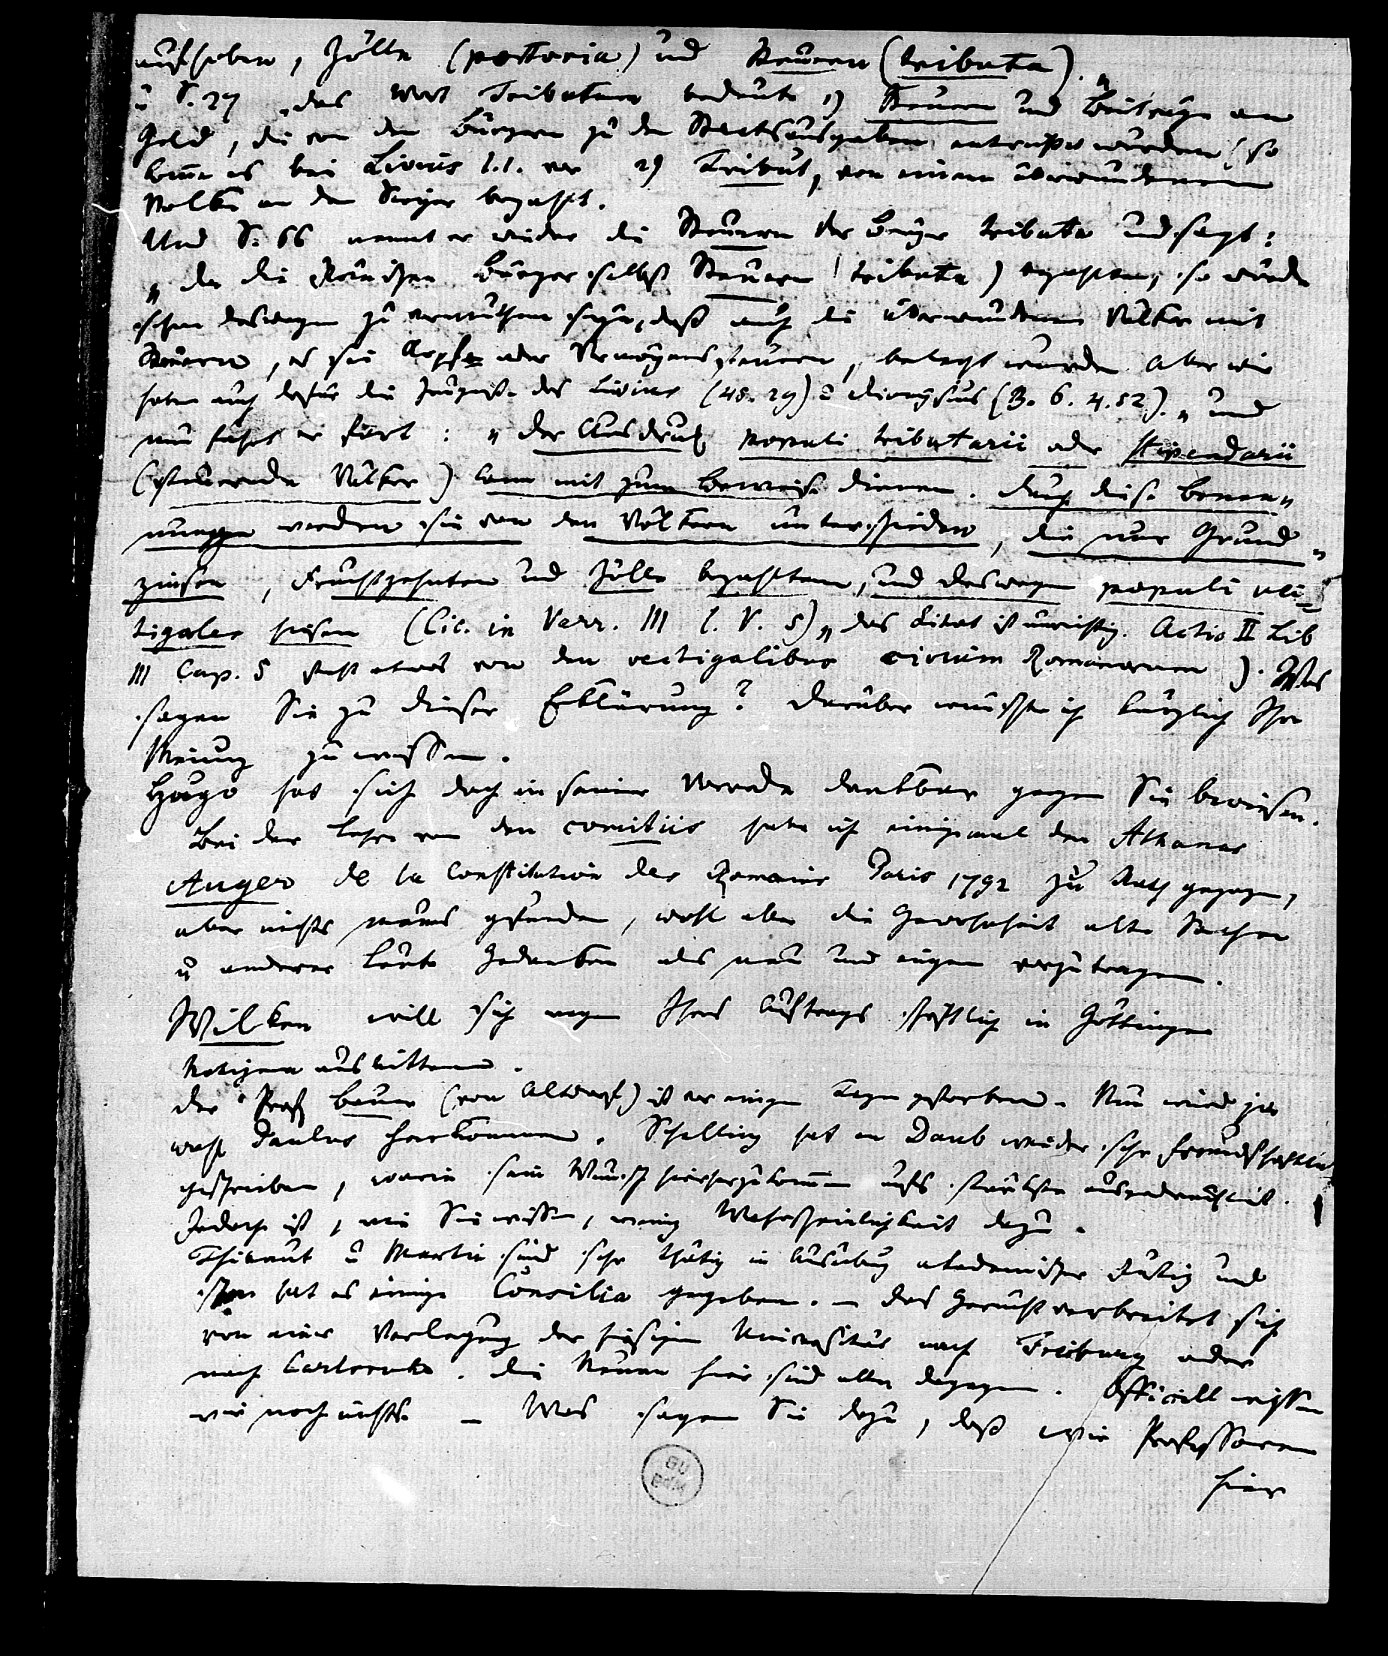 aufheben, Zölle (portoria) und Steuern (tributa)."
u S. 27 "das Wort Tributum bedeute 1) Steuern und Beiträge an
Geld, die von den Bürgern zu den Staatsausgaben entrichtet wurden (so
komt es bei Livius l.1. vor 2) Tribut, von einem überwundenen
Volke an den Sieger bezahlt.
Und S. 66 nennt er wieder die Steuern der Bürger tributa und sagt:
"da die Römischen Bürger selbst Steuern (tributa) bezahlten, so würde
schon deswegen zu vermuthen seyn, daß auch die überwundenen Völker mit
Steuern, es sey Kopf- oder Vermögenssteuern, belegt wurden. Aber wir
haben auch dafür die Zeugniße des Livius (45. 29) u Dionysius (B. 6. 4.52)." und
nun fährt er fort: "der Ausdruck populi tributarii oder stipendarii
(steuernde Völker) kann mit zum Beweise dienen. Durch diese Benen-
nungen werden sie von den Völkern unterschieden, die nur Grund-
zinsen, Fruchtzehnten und Zölle bezahlten, und deswegen populi vec-
tigales heisen (Cic. in Verr. III l. V. 5)" das Citat ist unrichtig. Actio II Lib
III Cap. 5 steht etwas von den vectigalibus civium Romanorum). Was
sagen Sie zu dieser Erklärung? Darüber wünschte ich kürzlich Ihre
Meinung zu wissen.
Hugo hat sich doch in seiner Vorrede dankbar gegen Sie bewiesen.
Bei der Lehre von den comitiis habe ich einigemal den Athanas
Auger de la Constitution des Romains Paris 1792 zu Rath gezogen,
aber nichts neues gefunden, wohl aber die Gewohnheit alte Sachen
u anderer Leute Gedanken als neu und eigen vorzutragen.
Wilken will sich wegen Ihres Auftrags schriftlich in Göttingen
Notizen ausbitten.
Der Prof Bauer (von Altdorf) ist vor einigen Tagen gestorben. Nun wird ja
wohl Paulus herkommen. Schelling hat an Daub wieder sehr freundschaftlich
geschrieben, worin sein Wunsch hierherzukommen aufs stärkste ausgedrückt ist.
Jedoch ist, wie Sie wissen, wenig Wahrscheinlichkeit dazu.
Thibaut u Martin sind sehr thätig in Ausübung akademischer und
schon hat es einige Consilia gegeben. – Das Gerücht verbreitet sich
von einer Verlegung der hiesigen Universität nach Freiburg oder
nach Carlsruhe. Die Neuen hier sind alle dagegen. Officiell wissen
wir noch nichts. – Was sagen Sie dazu, daß wir Professoren
hier